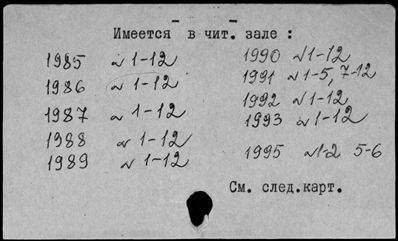 Имеется в чит. зале :
1985 № 1-12
1986 № 1-12
1987 № 1-12
1988 № 1-12
1989 № 1-12
1990 № 1-12
1991 № 1-5, 7-12
1992 № 1-12
1993 № 1-12
1995 № 1-2 5-6
См. след.карт.